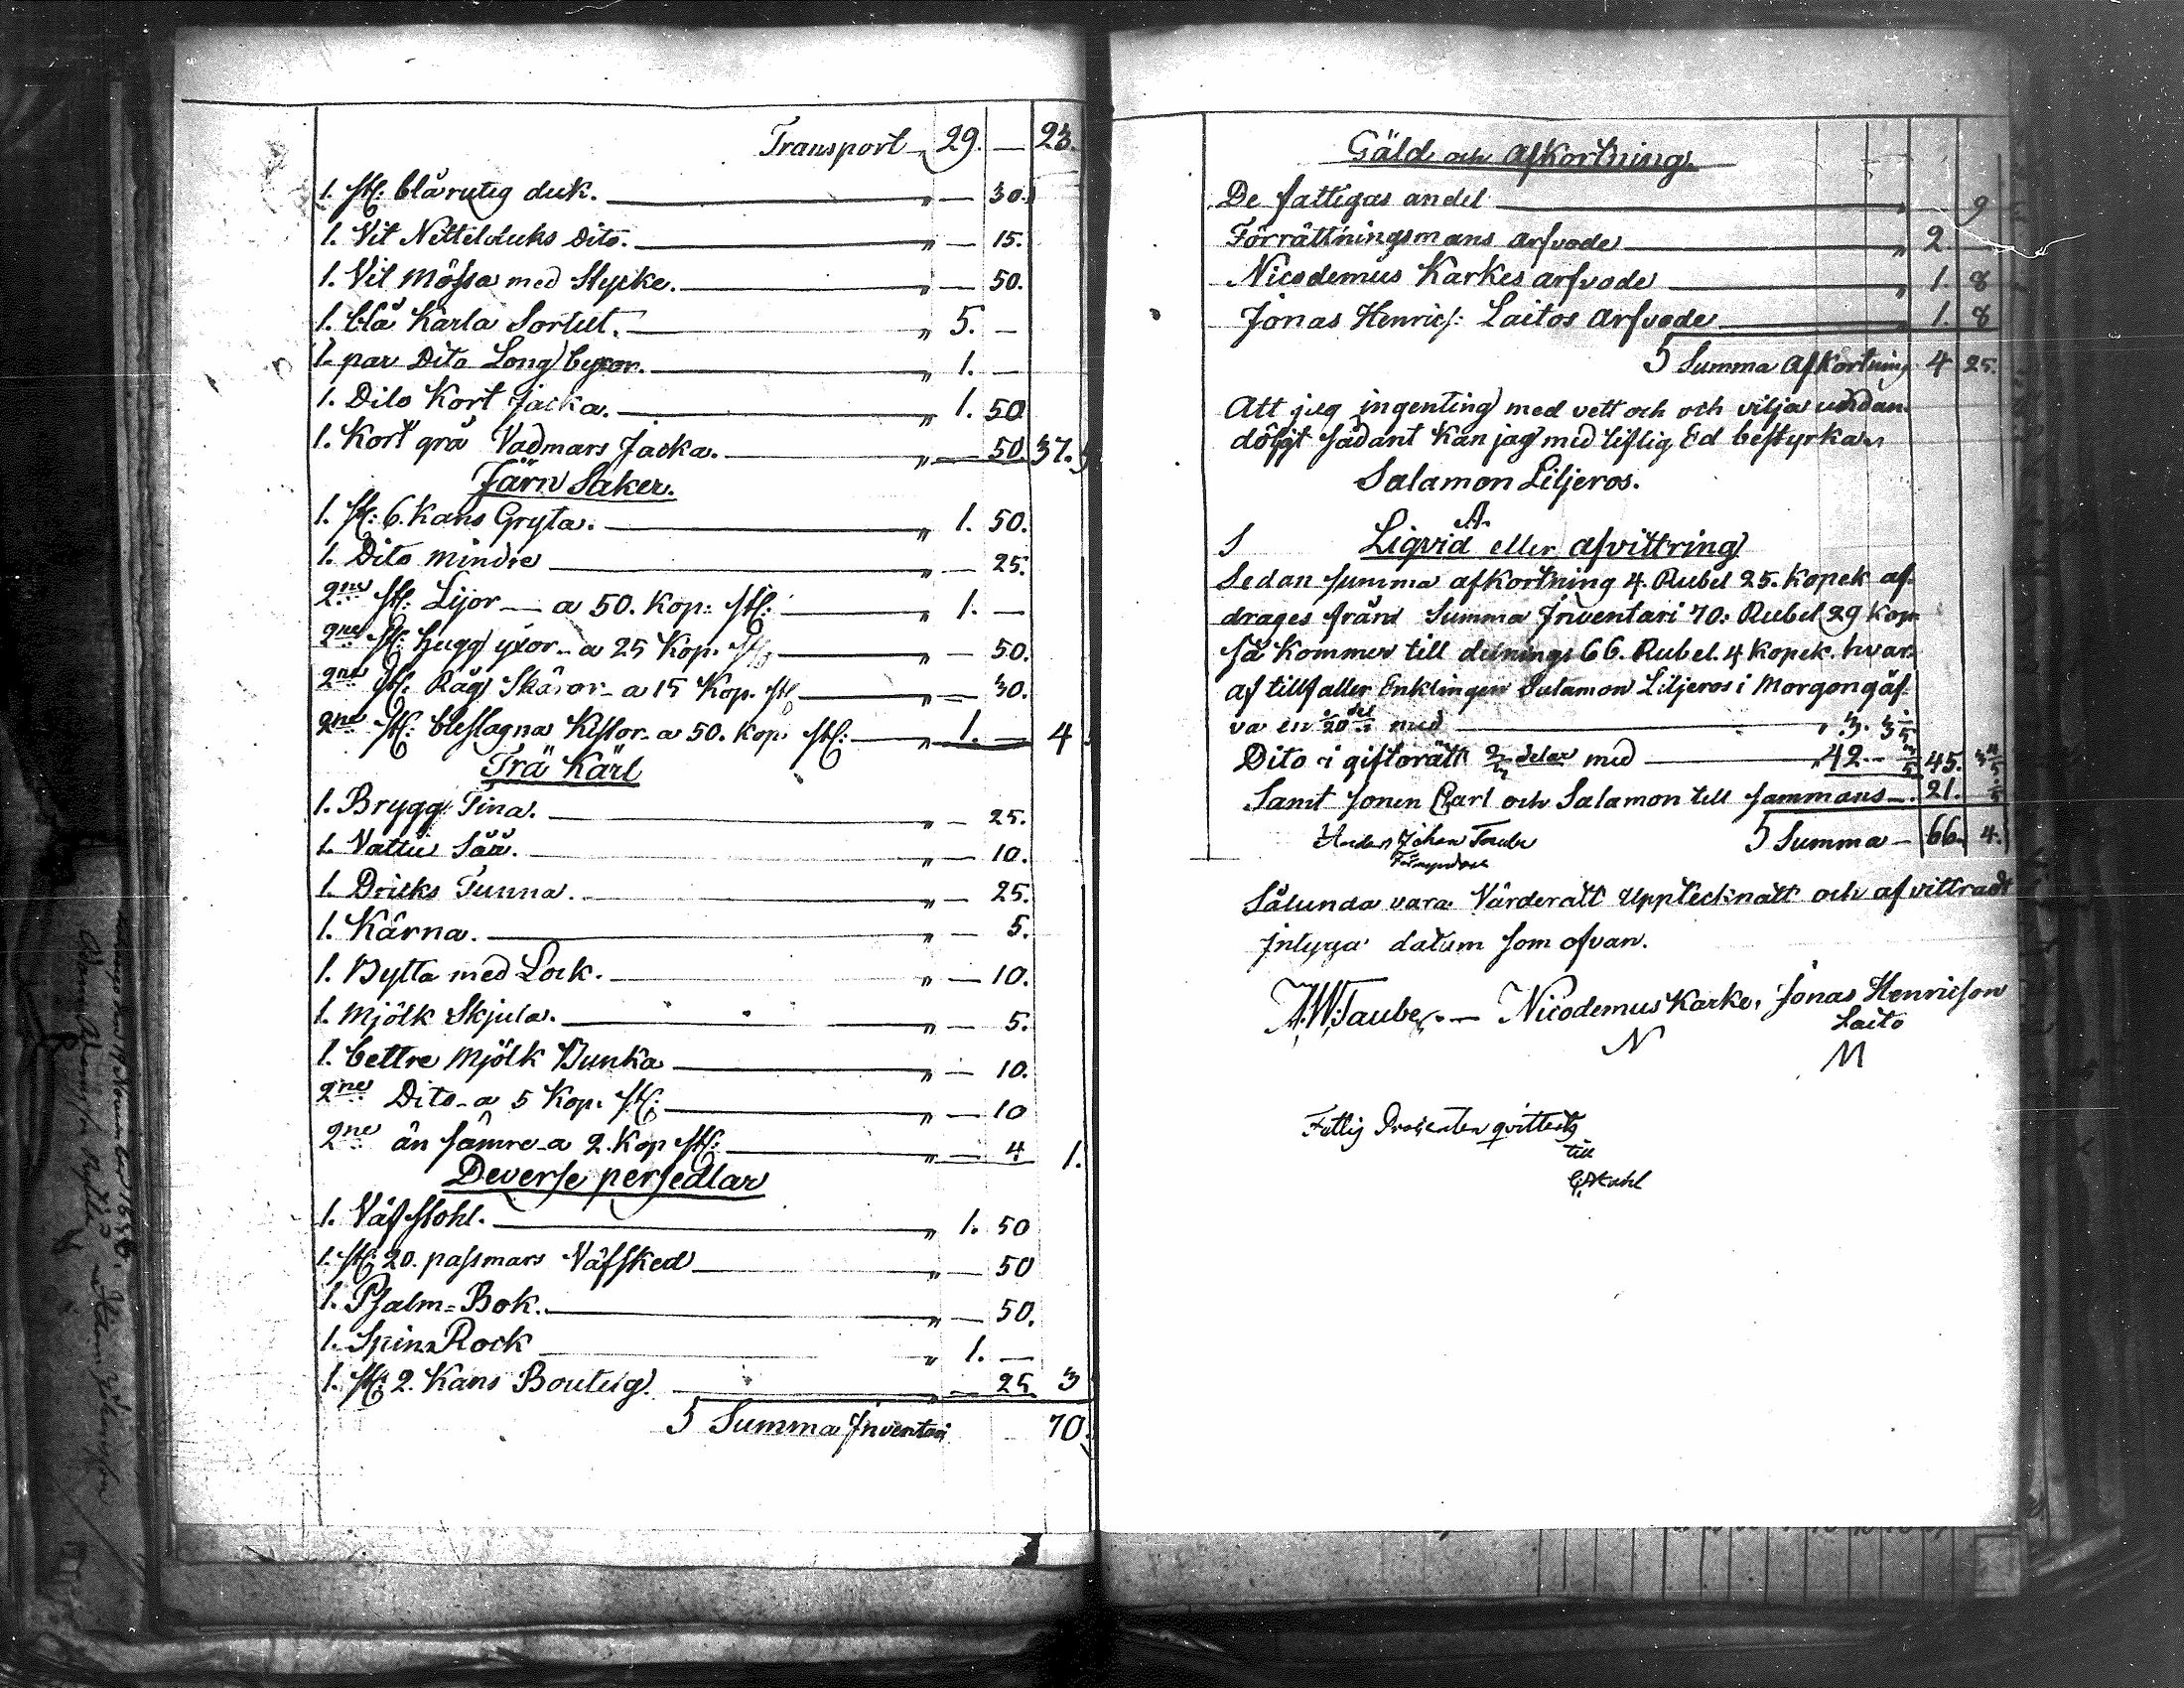 Transport „ 29. — 23.
1. st: blårutig duk. „ — 30.
1. Vit Nettelduks Dito. „ — 15.
1. Vit Mössa med Stycke. „ — 50.
1. blå Karla Sortut. „ 5. —
1. par Dito Long byxor. „ 1. —
1. Dito Kort Jacka. „ 1. 50
1. Kort grå Vadmars Jacka. „ — 50. 37.
Järn Saker.
1. st: 6. Kans Gryta. „ 1. 50.
1. Dito Mindre „ — 25.
2ne st: Lijor — a 50. Kop: st: „ 1. —
2ne st: hugg yxor — a 25 Kop. st: „ — 50.
2ne st: Råg Skäror — a 15 Kop. st: „ — 30.
2ne st: beslagna Kistor — a 50. Kop. st: „ 1. — 4
Trä Kärl
1. Brygg Tina. „ — 25.
1. Vattu Såå. „ — 10.
1. Dricks Tunna. „ — 25.
1. Kärna. „ — 5.
1. Bytta med Lock. „ — 10.
1. Mjölk Skjula. „ — 5.
1. bettre Mjölk Bunka „ — 10.
2ne Dito — a 5 Kop. st: „ — 10
2ne än sämre — a 2. Kop st: „ — 4 1.
Deverse persedlar
1. Väf stohl. „ 1. 50
1. st: 20. passmars Väfsked „ — 50
1. Psalm=Bok. „ — 50.
1. Spinn Rock „ 1. —
1. st: 2. Kans Bouteig. „ — 25 3
S Summa Inventari 70.
Gäld och Afkortning.
De fattigas andel „ 9
Förrättningsmans arfvode „ 2.
Nicodemus Karkes arfvode „ 1. 8
Jonas Henrics: Laitos Arfvode „ 1. 8
S Summa Afkortning 4 25.
Att jag ingenting med vett och och vilja undan
döljt sådant Kan jag med liflig Ed bestyrka
Salamon Liljeros.
A.
Liqvid eller afvittring
Sedan summa afkortning 4. Rubel 25. Kopek af-
drages från Summa Inventari 70. Rubel 29 Kop
så Kommer till delnings 66. Rubel. 4 Kopek. hvar-
af tillfaller Enklingen Salamon Liljeros i Morgongåf-
va en 1/20 del med „ 3.
Dito i giftorätt 2/3 delar med „ 42. — 45.
Samt sonen Carl och Salamon till sammans — 21.
Anders Johan Taube S Summa — 66. 4.
Förmyndare
Sålunda vara Värderatt Upptecknatt och af vittradt
Intyga datum som ofvan.
A. W. Taube. — Nicodemus Karke, Jonas Henricson
Laito
N M
Fattig Procenten qvitteras
till